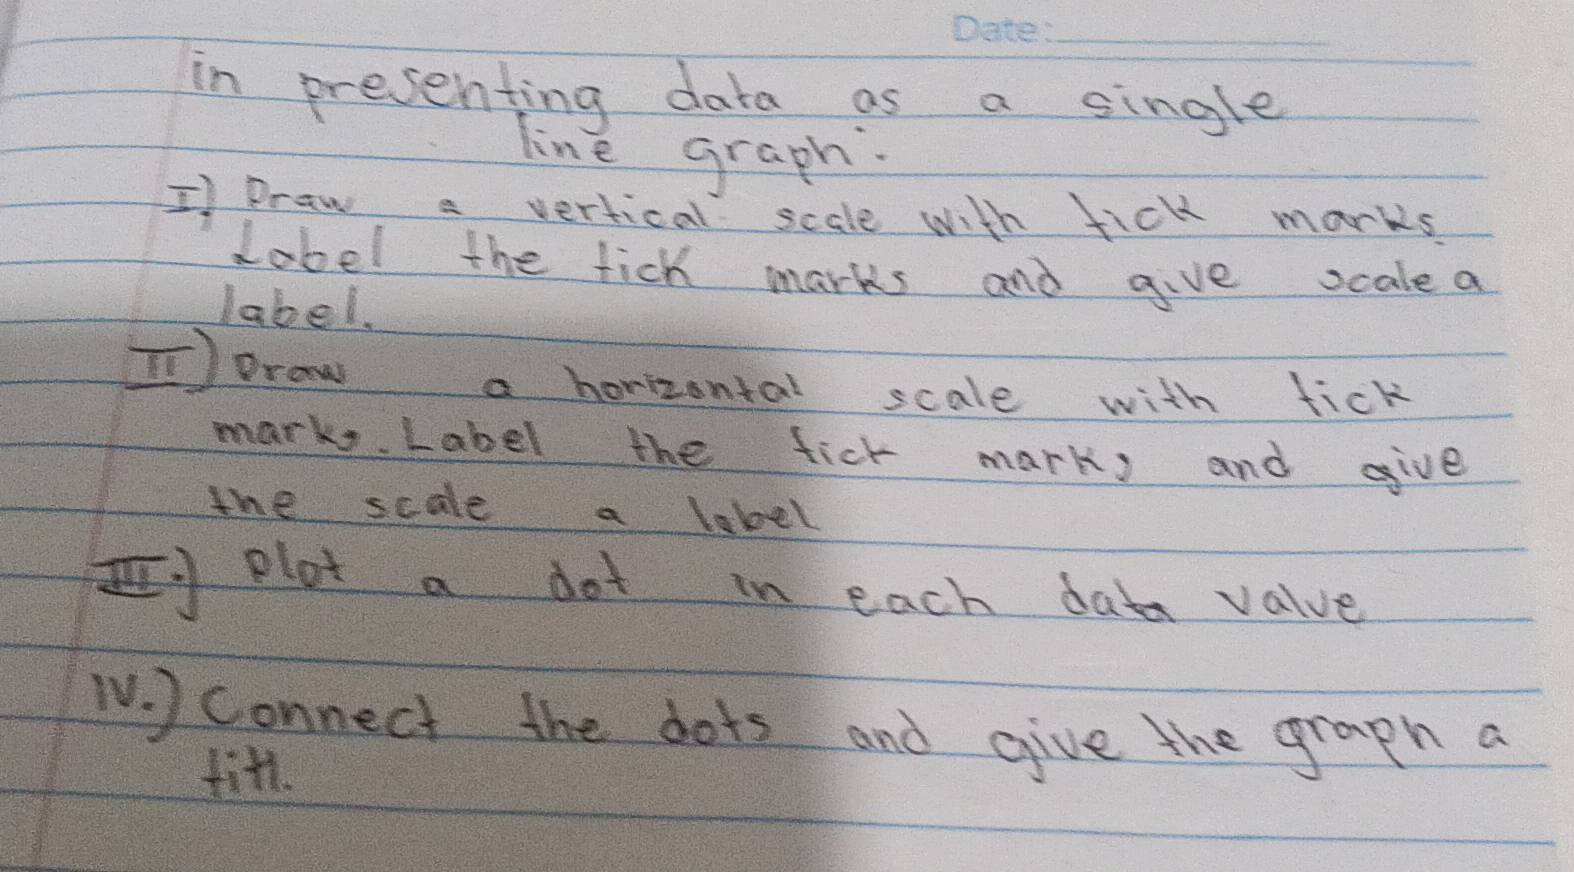 Date:
in presenting data as a single
line graph.
I) Draw a vertical scale with tick marks.
Label the tick marks and give scale a
label.
II) Draw a horizontal scale with tick
marks. Label the tick marks and give
the scale a label
III.) plot a dot in each data value
IV.) Connect the dots and give the graph a
titl.